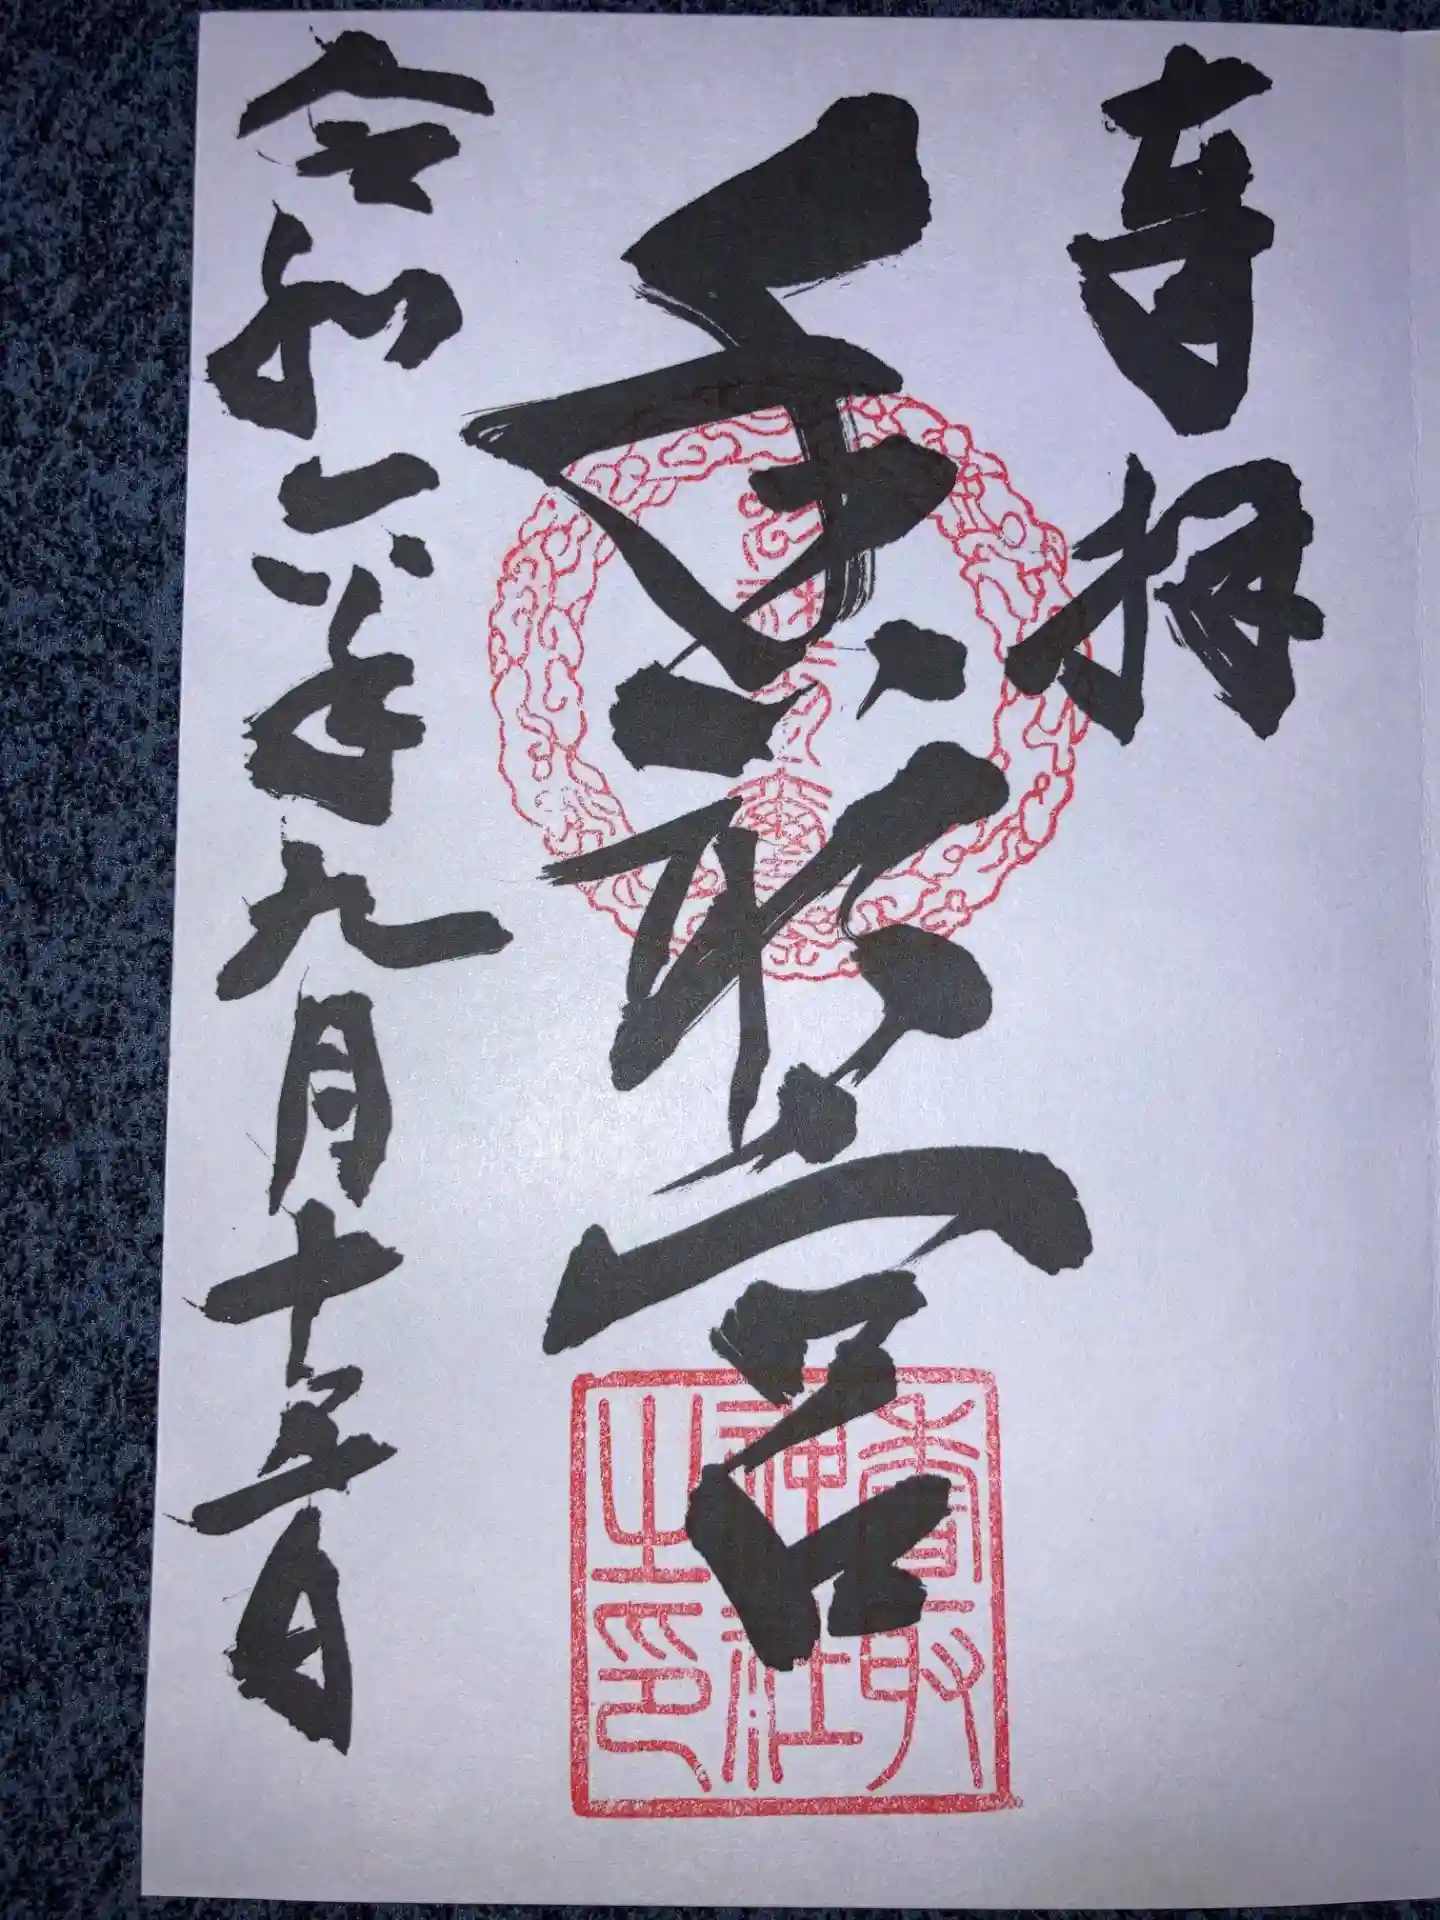 奉拝
香取宮
令和六年九月十五日
香取神社之印